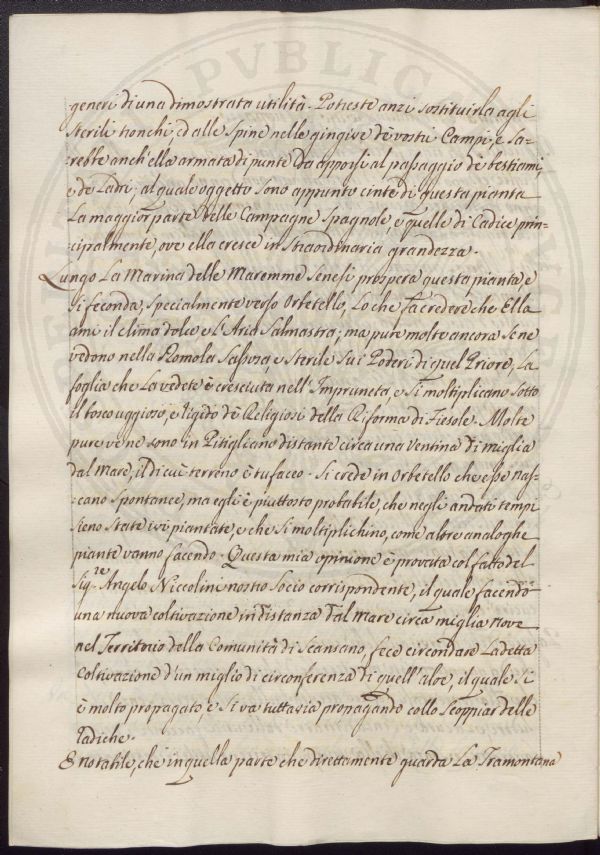 generi di una dimostrata utilità. Potreste anzi sostituirla agli
sterili tronchi, ed alle Spine nelle gingive de vostri Campi, e sa=
=rebbe anch'ella armata di punte da opporsi al passaggio de bestiami,
e de Ladri; al quale oggetto sono appunto cinte di questa pianta
la maggior parte delle Campagne Spagnole, e quelle di Cadice prin=
=cipalmente, ove ella cresce in straordinaria grandezza.
Lungo La Marina delle Maremme Senesi prospera questa pianta, e
si feconda, specialmente verso Orbetello, Lo che fa credere che Ella
ami il clima dolce e l'Aria Salmastra; ma pure molte ancora se ne
vedono nella Romola Sassosa, e Sterile Sui Poderi di quel Priore, La
foglia che La vedete è cresciuta nell'Impruneta, e Si moltiplicano sotto
il bosco uggioso, e rigido de Religiosi della Riforma di Fiesole. Molte
pure ve ne sono in Pitigliano distante circa una Ventina di miglia
dal Mare, il di cui terreno è tufaceo. Si crede in Orbetello che esse nas=
=cano Spontanee, ma egli è piuttosto probabile, che negli andati tempi
sieno State ivi piantate, e che Si moltiplichino, come altre analoghe
piante vanno facendo. Questa mia opinione è provata col fatto del
Sig.re Angelo Niccolini nostro Socio corrispondente, il quale facendo
una nuova coltivazione in distanza dal mare circa miglia nove
nel Territorio della Comunità di Scansano, fece circondare La detta
Coltivazione d'un miglio di circonferenza di quell'aloe, il quale Si
è molto propagato, e Si va tuttavia propagando collo Scoppiar delle
radiche.
E notabile, che in quella parte che direttamente guarda La Tramontana